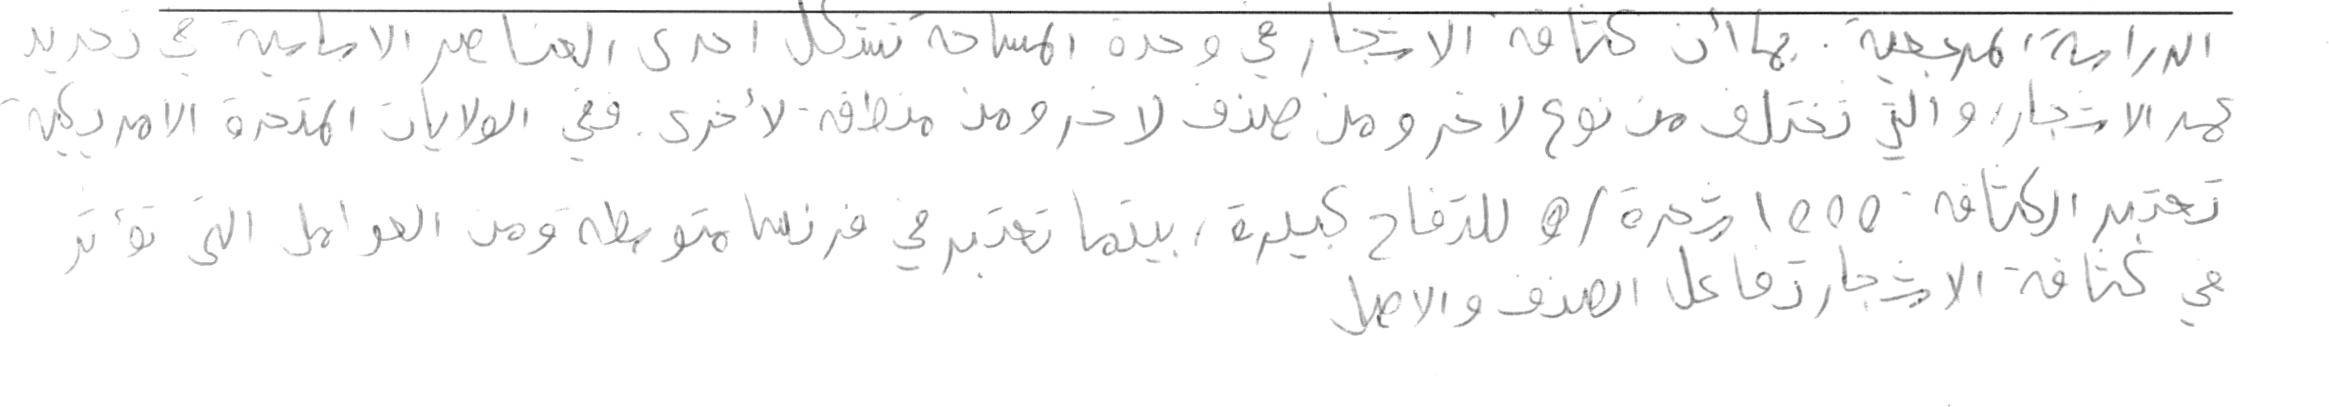 الدراسة المرجعية. بما أن كثافة الاشجار في وحدة المساحة تشكل احدى العناصر الاساسية في تحديد
عمر الاشجار، والتي تختلف من نوع لاخر ومن صنف لاخر ومن منطقة لأخرى. ففي الولايات المتحدة الامريكية
تعتبر الكثافة 1000 شجرة/ه للتفاح كبيرة، بينما تعتبر في فرنسا متوسطة ومن العوامل التي تؤثر
في كثافة الاشجار تفاعل الصنف والاصل